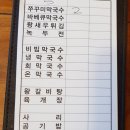 쭈꾸미막국수 2
바베큐막국수
왕새우튀김
녹두전
비빔막국수
냉막국수
회막국수
온막국수
왕갈비탕
육개장
사리
공기밥